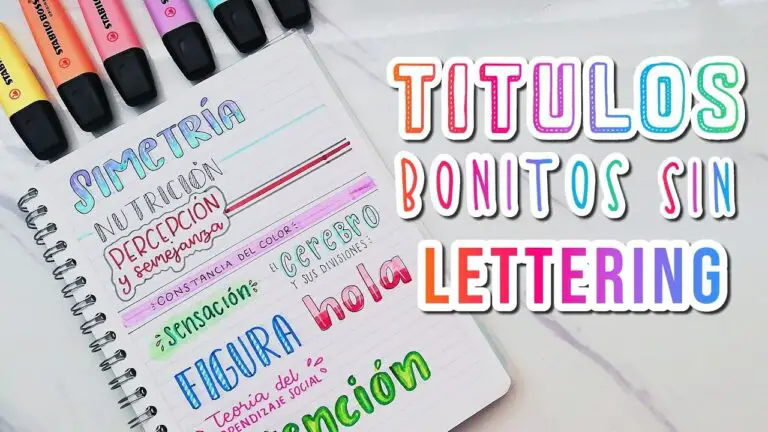 STABILO BOSS
STABILO BOSS
STABILO BOSS
STABILO
TITULOS
BONITOS SIN
LETTERING
SIMETRÍA
NUTRICIÓN
PERCEPCIÓN
y semejanza
CONSTANCIA DEL COLOR
EL CEREBRO
Y SUS DIVISIONES
sensación
hola
FIGURA
Teoría del
APRENDIZAJE SOCIAL